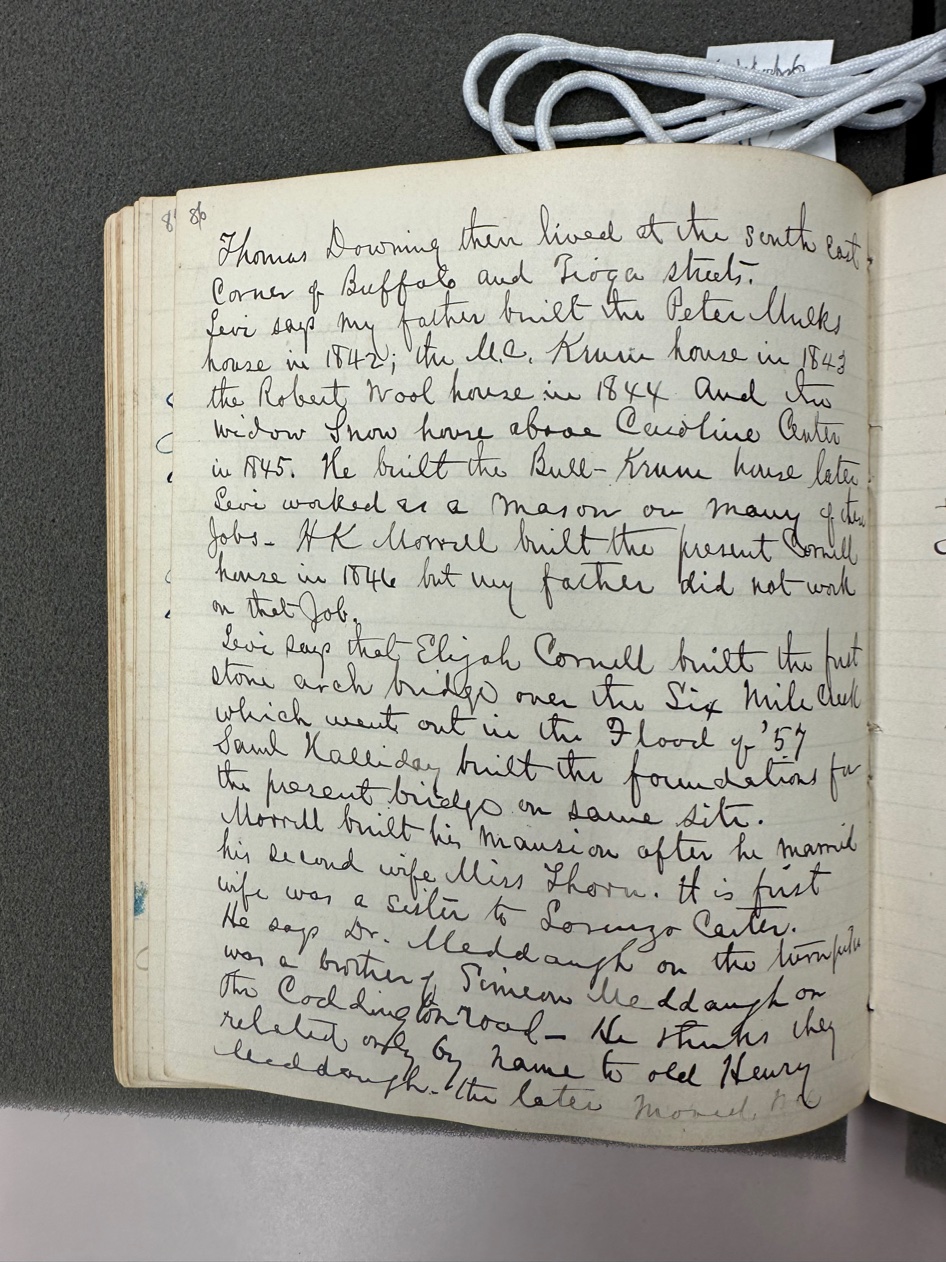 86
Thomas Downing then lived at the South East
Corner of Buffalo and Tioga streets.
Levi says my father built the Peter Mulks
house in 1842; the M.C. Krum house in 1843
the Robert Wool house in 1844 And the
widow Snow house above Caroline Center
in 1845. He built the Bull-Krum house later
Levi worked as a mason on many of these
Jobs- HK Morrell built the present Cornell
house in 1846 but my father did not work
on that Job.
Levi says that Elijah Cornell built the first
stone arch bridge over the Six Mile Creek
which went out in the Flood of '57
Saml Halliday built the foundations for
the present bridge on same site.
Morrell built his mansion after he married
his second wife Miss Thorn. It is first
wife was a sister to Lorenzo Carter.
He says Dr. Meddaugh on the turnpike
was a brother of Simeon Meddaugh on
the Coddington road- He thinks they
related only by name to old Henry
Meddaugh. The later moved